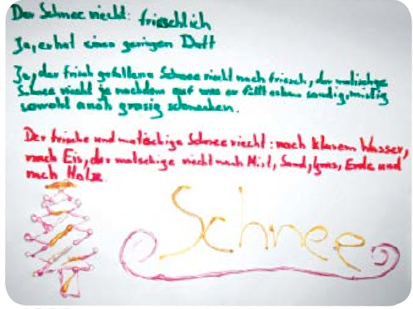 Der Schnee riecht: frieschlich
Ja, er hat einen geringen Duft
Ja, der frisch gefallene Schnee riecht nach friesch, der matschige
Schnee riecht je nachdem auf was er fällt sandig, mistig
sowohl auch grasig schmecken.
Der frische und matschige Schnee riecht: nach klarem Wasser,
nach Eis, der matschige riecht nach Mist, Sand, Gras, Erde und
nach Holz.
Schnee